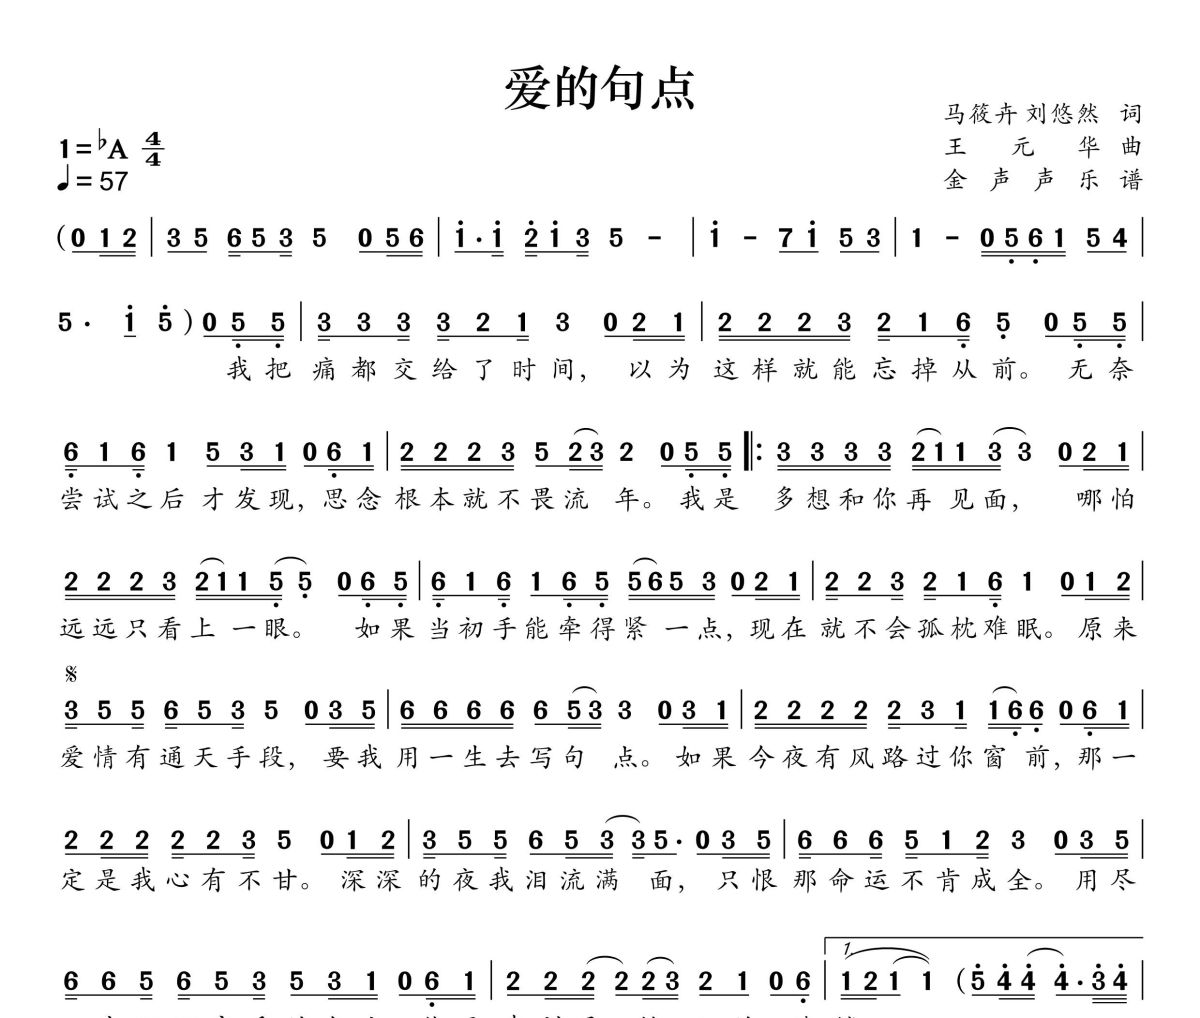 爱的句点
马筱卉 刘悠然 词
1=♭A 4/4
王元华 曲
♩=57
金声声乐 谱
(0 1 2 | 3 5 6 5 3 5 0 5 6 | i · i 2 i 3 5 - | i - 7 i 5 3 | 1 - 0 5 6 1 5 4 |
5 · i 5 ) 0 5 5 | 3 3 3 3 2 1 3 0 2 1 | 2 2 2 3 2 1 6 5 0 5 5 |
我把痛都交给了时间, 以为这样就能忘掉从前。 无奈
6 1 6 1 5 3 1 0 6 1 | 2 2 2 3 5 2 3 2 0 5 5 ‖: 3 3 3 3 2 1 1 3 3 0 2 1 |
尝试之后才发现, 思念根本就不畏流年。 我是多想和你再见面, 哪怕
2 2 2 3 2 1 1 5 5 0 6 5 | 6 1 6 1 6 5 5 6 5 3 0 2 1 | 2 2 3 2 1 6 1 0 1 2 |
远远只看上一眼。 如果当初手能牵得紧一点, 现在就不会孤枕难眠。 原来
𝄋
3 5 5 6 5 3 5 0 3 5 | 6 6 6 6 6 5 3 3 0 3 1 | 2 2 2 2 2 3 1 1 6 6 0 6 1 |
爱情有通天手段, 要我用一生去写句点。 如果今夜有风路过你窗前, 那一
2 2 2 2 2 3 5 0 1 2 | 3 5 5 6 5 3 3 5 · 0 3 5 | 6 6 6 5 1 2 3 0 3 5 |
定是我心有不甘。 深深的夜我泪流满面, 只恨那命运不肯成全。 用尽
1
6 6 5 6 5 3 5 3 1 0 6 1 | 2 2 2 2 2 3 2 1 0 6 | 1 2 1 1 (5 4 4 4 · 3 4 |